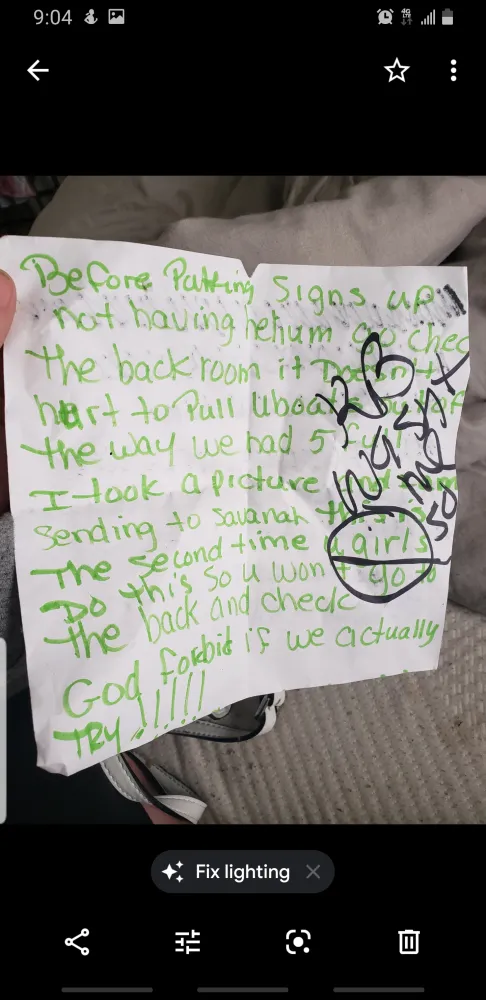 9:04
4G LTE
Before Putting Signs up
not having helium go chec
the back room it Doesn't
hurt to Pull Uboats out of
the way we had 5 full
I took a picture and
Sending to Savanah
The second time girls
Do this so u won't go to
the back and check
God forbid if we actually
TRY!!!!!!
Fix lighting